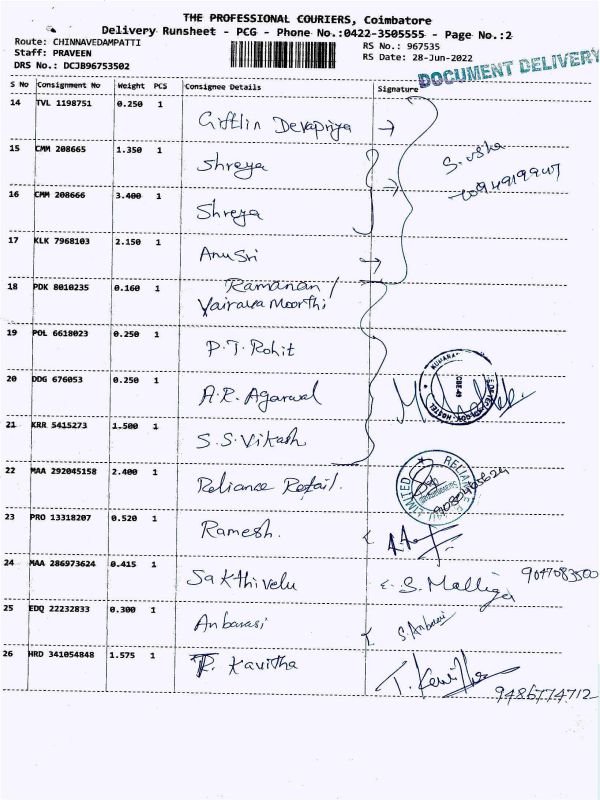 THE PROFESSIONAL COURIERS, Coimbatore
Delivery Runsheet - PCG - Phone No.:0422-3505555 - Page No.:2
Route: CHINNAVEDAMPATTI
RS No.: 967535
Staff: PRAVEEN
RS Date: 28-Jun-2022
DRS No.: DCJB96753502
DOCUMENT DELIVERY
S No Consignment No Weight PCS Consignee Details Signature
14 TVL 1198751 0.250 1 Giftlin Devapriya
15 CMM 208665 1.350 1 Shreya
S. Usha
16 CMM 208666 3.400 1 Shreya
17 KLK 7968103 2.150 1 Anu Sri
18 PDK 8010235 0.160 1 Ramanan /
Vairava Moorthi
19 POL 6618023 0.250 1 P.T. Rohit
20 DDG 676053 0.250 1 A.R. Agarwal
21 KRR 5415273 1.500 1 S.S. Vikash
22 MAA 292045158 2.400 1 Reliance Retail.
RELIANCE LIMITED
23 PRO 13318207 0.520 1 Ramesh.
24 MAA 286973624 0.415 1 Sakthivelu S. Malliga 9047083500
25 EDQ 22232833 0.300 1 Anbarasi S. Anbarasi
26 HRD 341054848 1.575 1 T. Kavitha T. Kavitha
9486774712